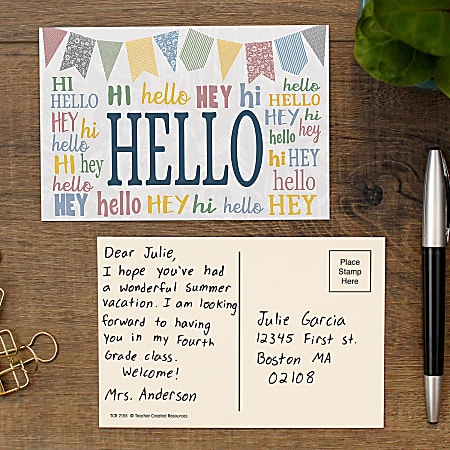 HI hello HEY hi hello
HELLO HELLO
HEY hi HEY hi
hello HELLO hello hey
HI hey hi HEY
hello hello
HEY hello HEY hi hello HEY
Dear Julie,
I hope you've had
a wonderful summer
vacation. I am looking
forward to having
you in my Fourth
Grade class.
Welcome!
Mrs. Anderson
TCR 2155 © Teacher Created Resources
Place
Stamp
Here
Julie Garcia
12345 First st.
Boston MA
02108